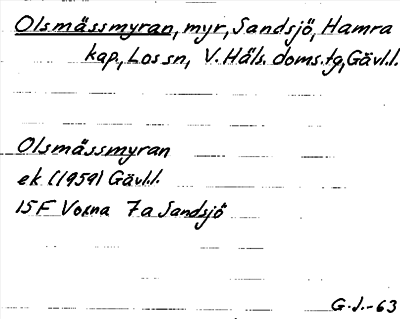 Olsmässmyran, myr, Sandsjö, Hamra
kap., Los sn, V. Häls. doms.tg, Gävl.l.
Olsmässmyran
ek (1959) Gävl.l.
15F Voxna 7a Sandsjö
G.J.-63